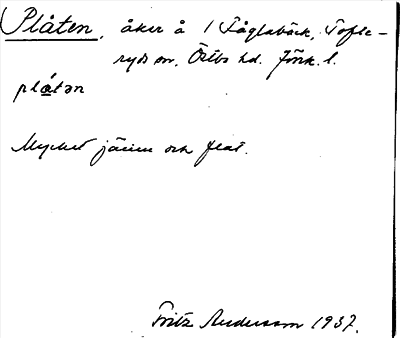 Plåten, åker å 1 Fåglabäck, Tofte-
ryds sn. Östbo hd. Jönk. l.
plǻtən
Mycket jämn och flat.
Fritz Andersson 1937.